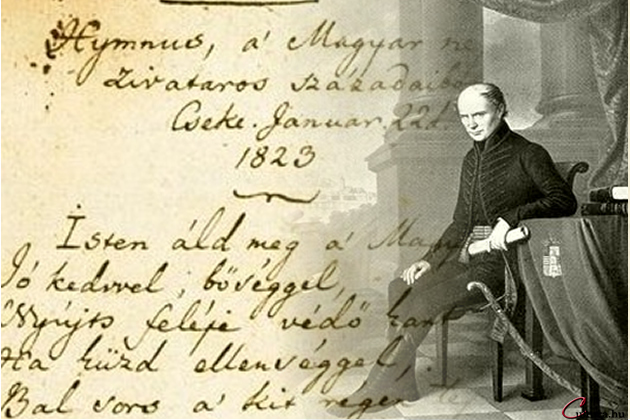 Hymnus, a' Magyar ne
zivataros századaib
Cseke. Januar. 22d.
1823
Isten áld meg a' Magy
Jó kedvvel, bőséggel,
Nyújts feléje védő kart
Ha küzd ellenséggel,
Bal sors a' kit régen té